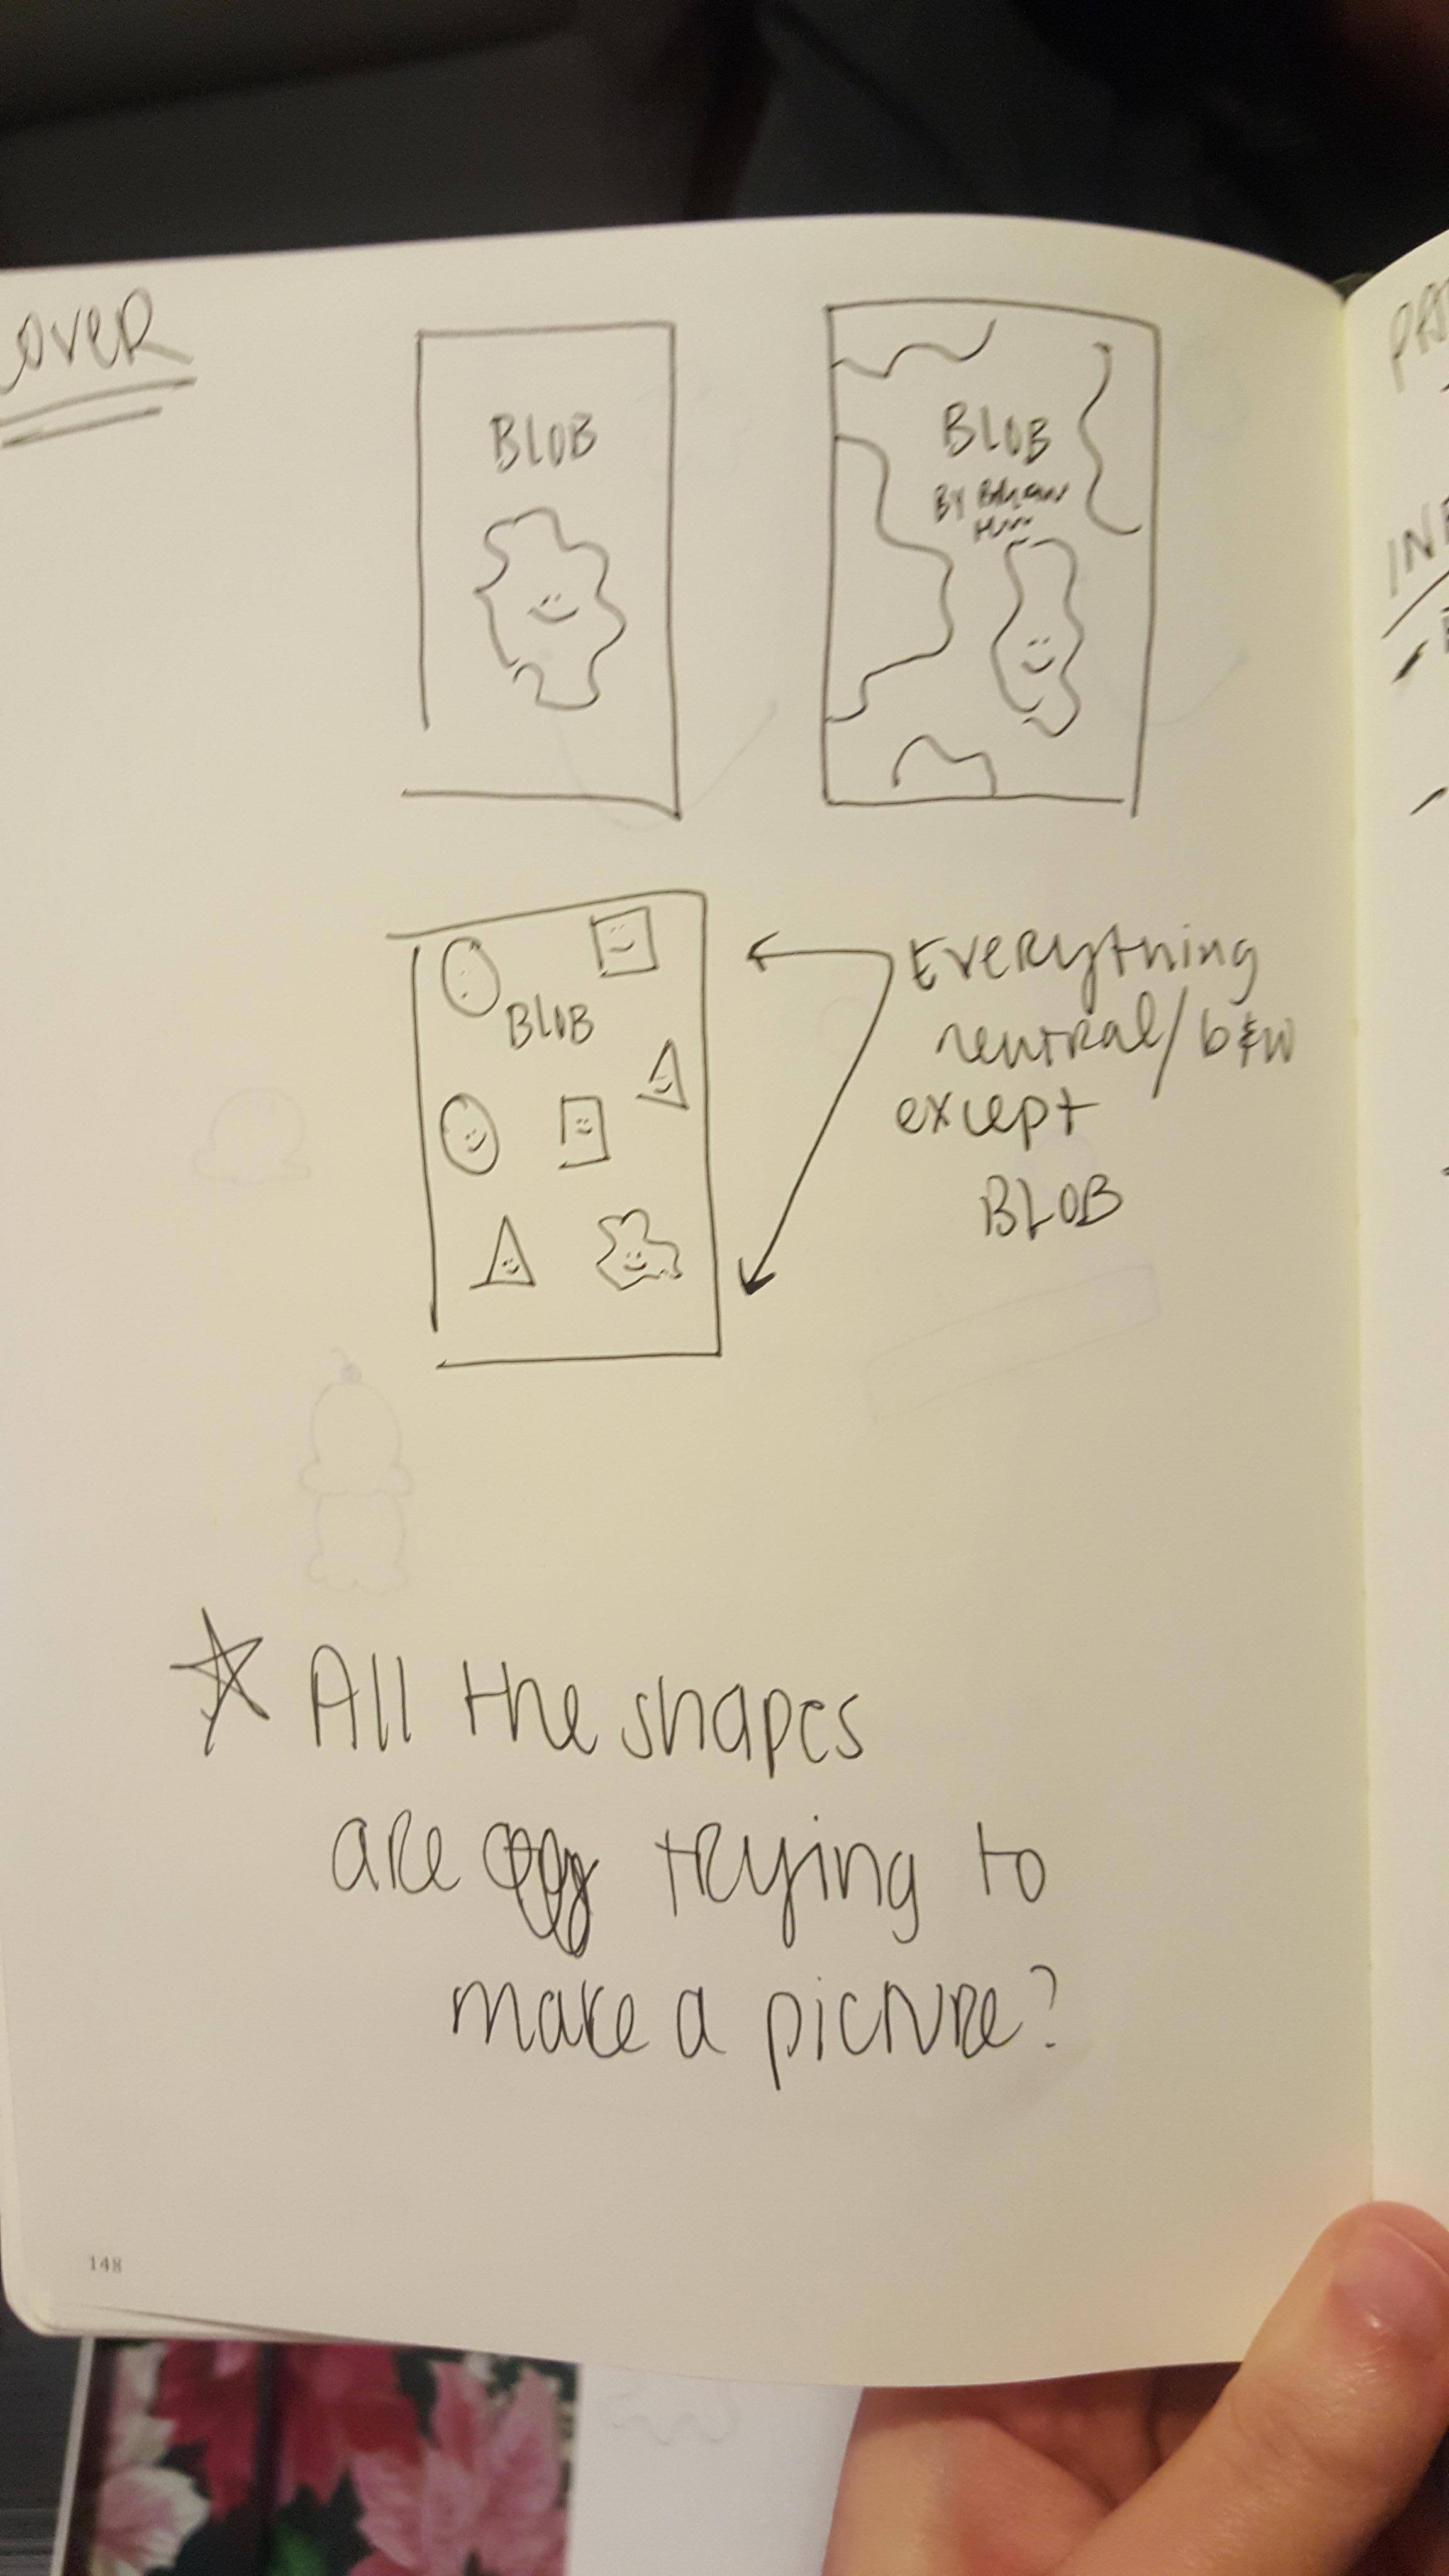 over
BLOB
BLOB
BY
BLOB
Everything
neutral/b&w
except
BLOB
All the shapes
are trying to
make a picture?
148